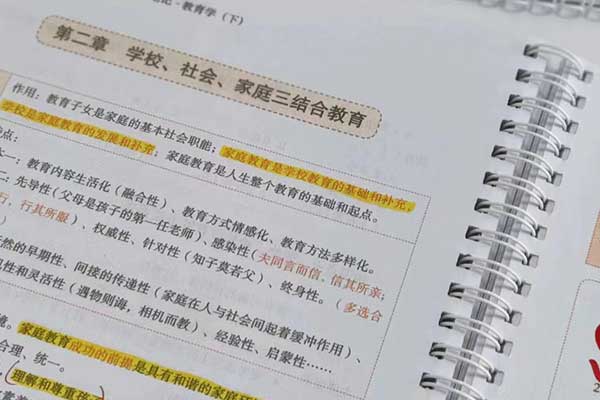 记·教育学（下）
第二章 学校、社会、家庭三结合教育
作用：教育子女是家庭的基本社会职能；家庭教育是学校教育的基础和补充，
学校是家庭教育的发展和补充；家庭教育是人生整个教育的基础和起点。
点：
一：教育内容生活化（融合性）、教育方式情感化、教育方法多样化。
：先导性（父母是孩子的第一任老师）、感染性（夫同言而信，信其所亲；
行，行其所服）、权威性、针对性（知子莫若父）、终身性。（多选合
然的早期性、间接的传递性（家庭在人与社会间起着缓冲作用）、
性和灵活性（遇物则诲，相机而教）、经验性、启蒙性……
境。家庭教育成功的前提是具有和谐的家庭环
合理、统一。
理解和尊重孩子
2